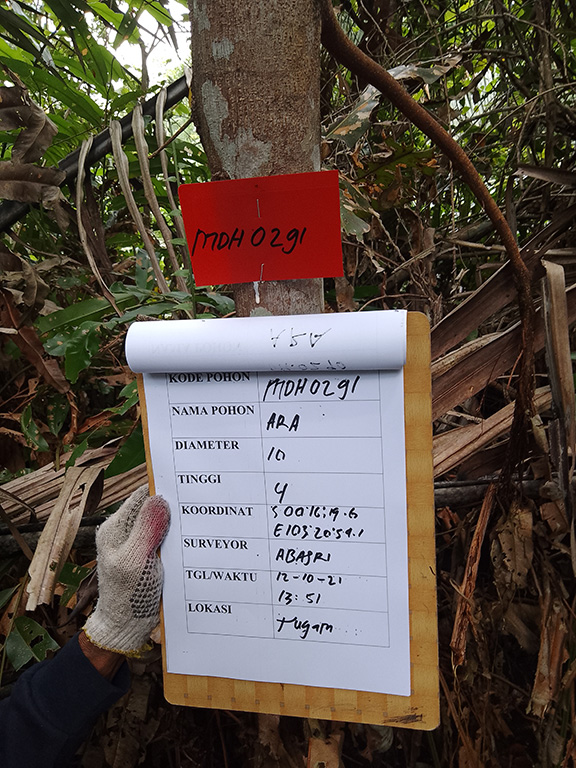 MDH0291
KODE POHON MDH0291
NAMA POHON ARA
DIAMETER 10
TINGGI 4
KOORDINAT S 00:16:19.6
E103:20:59.1
SURVEYOR ABASRI
TGL/WAKTU 12-10-21
13:51
LOKASI